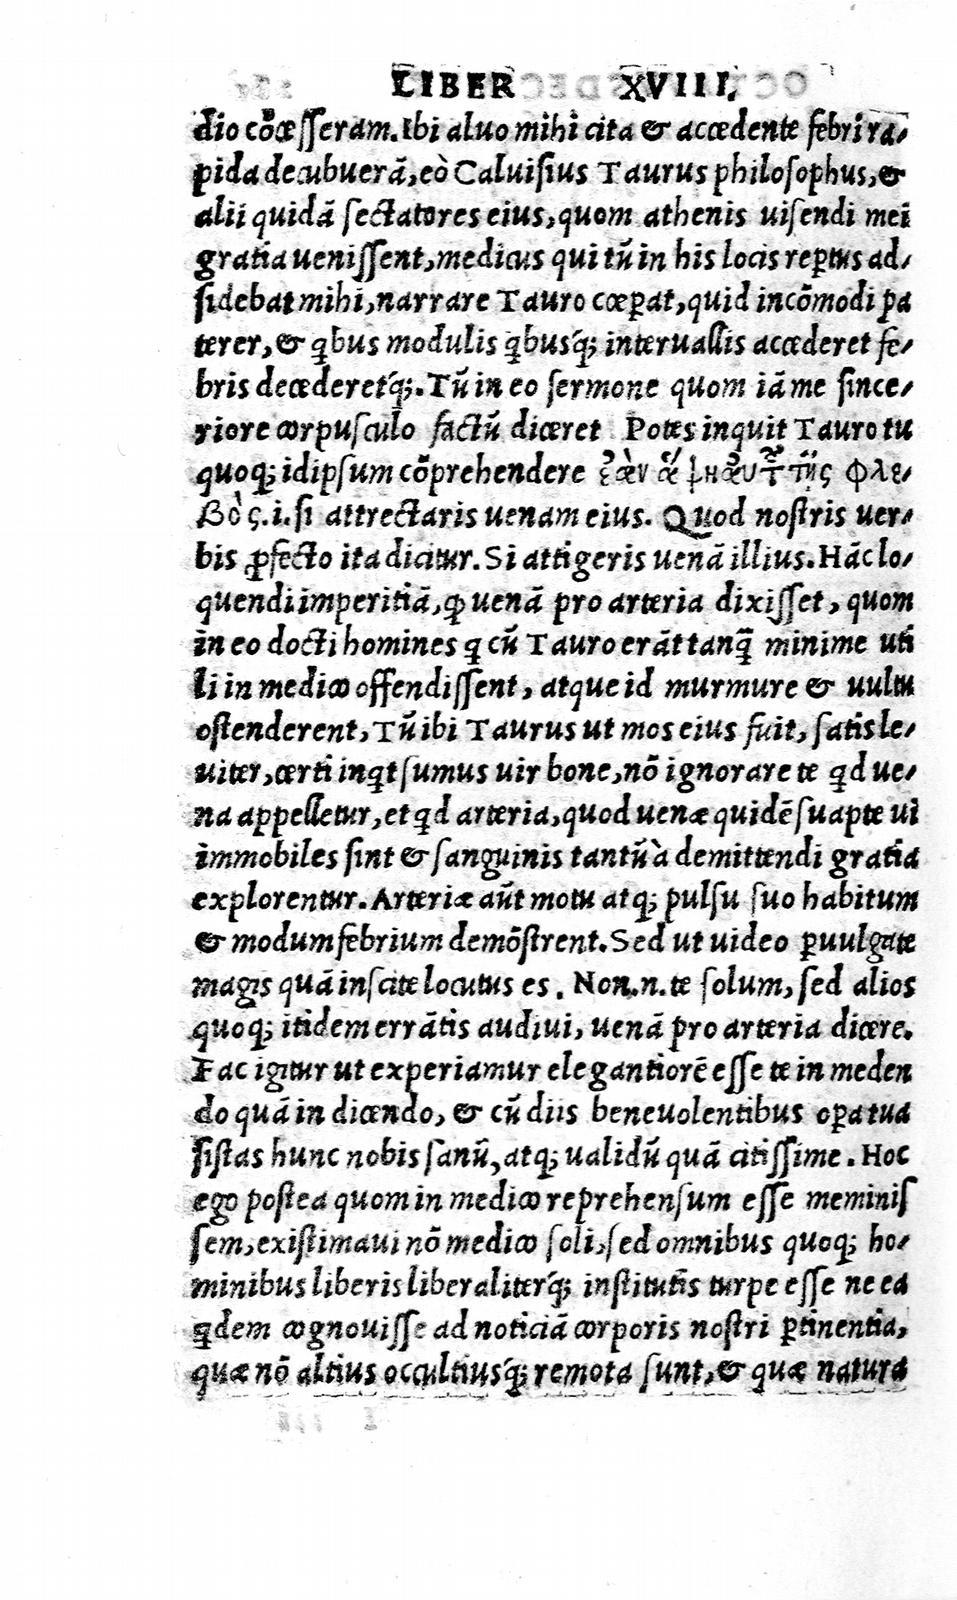 LIBER XVIII.
dio cõcesseram. Ibi aluo mihi cita & accedente febri ra-
pida decubuerã, eò Caluisius Taurus philosophus, &
alii quidã sectatores eius, quom athenis uisendi mei
gratia uenissent, medicus qui tũ in his locis reptus ad-
sidebat mihi, narrare Tauro cœpat, quid incõmodi pa
terer, & qbus modulis qbusq; interuallis accederet fe-
bris decederetq;. Tũ in eo sermone quom iã me since-
riore corpusculo factũ diceret Potes inquit Tauro tu
quoq; idipsum cõprehendere ἐὰν ἅψη αὐτ τῆς φλε-
βὸς. i. si attrectaris uenam eius. Quod nostris uer-
bis ꝓfecto ita dicitur. Si attigeris uenã illius. Hãc lo-
quendi imperitiã, ꝙ uenã pro arteria dixisset, quom
in eo docti homines q cũ Tauro erãt tanꝗ̃ minime uti
li in medico offendissent, atque id murmure & uultu
ostenderent, Tũ ibi Taurus ut mos eius fuit, satis le-
uiter, certi inqt sumus uir bone, nõ ignorare te qd ue-
na appelletur, et qd arteria, quod uenæ quidẽ suapte ui
immobiles sint & sanguinis tantũ à demittendi gratia
explorentur. Arteriæ aũt motu atq; pulsu suo habitum
& modum febrium demõstrent. Sed ut uideo ꝑuulgate
magis quã inscite locutus es. Non. n. te solum, sed alios
quoq; itidem errãtis audiui, uenã pro arteria dicere.
Fac igitur ut experiamur elegantiorẽ esse te in meden
do quã in dicendo, & cũ diis beneuolentibus oꝑa tua
sistas hunc nobis sanũ, atq; ualidũ quã citissime. Hoc
ego postea quom in medico reprehensum esse meminis
sem, existimaui nõ medico soli, sed omnibus quoq; ho-
minibus liberis liberaliterq; institutis turpe esse ne ea
qdem cognouisse ad noticiã corporis nostri ꝑtinentia,
quæ nõ altius occultiusq; remota sunt, & quæ natura